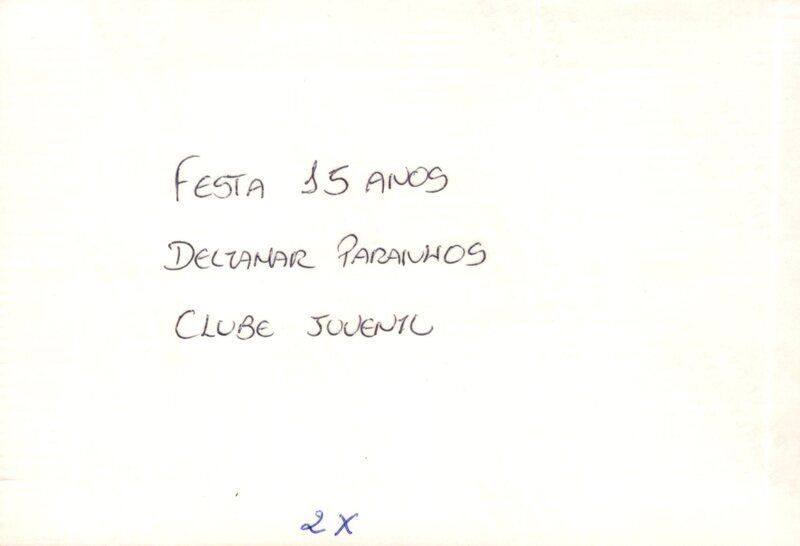 FESTA 15 ANOS
DELTAMAR PARAINHOS
CLUBE JUVENIL
2 X